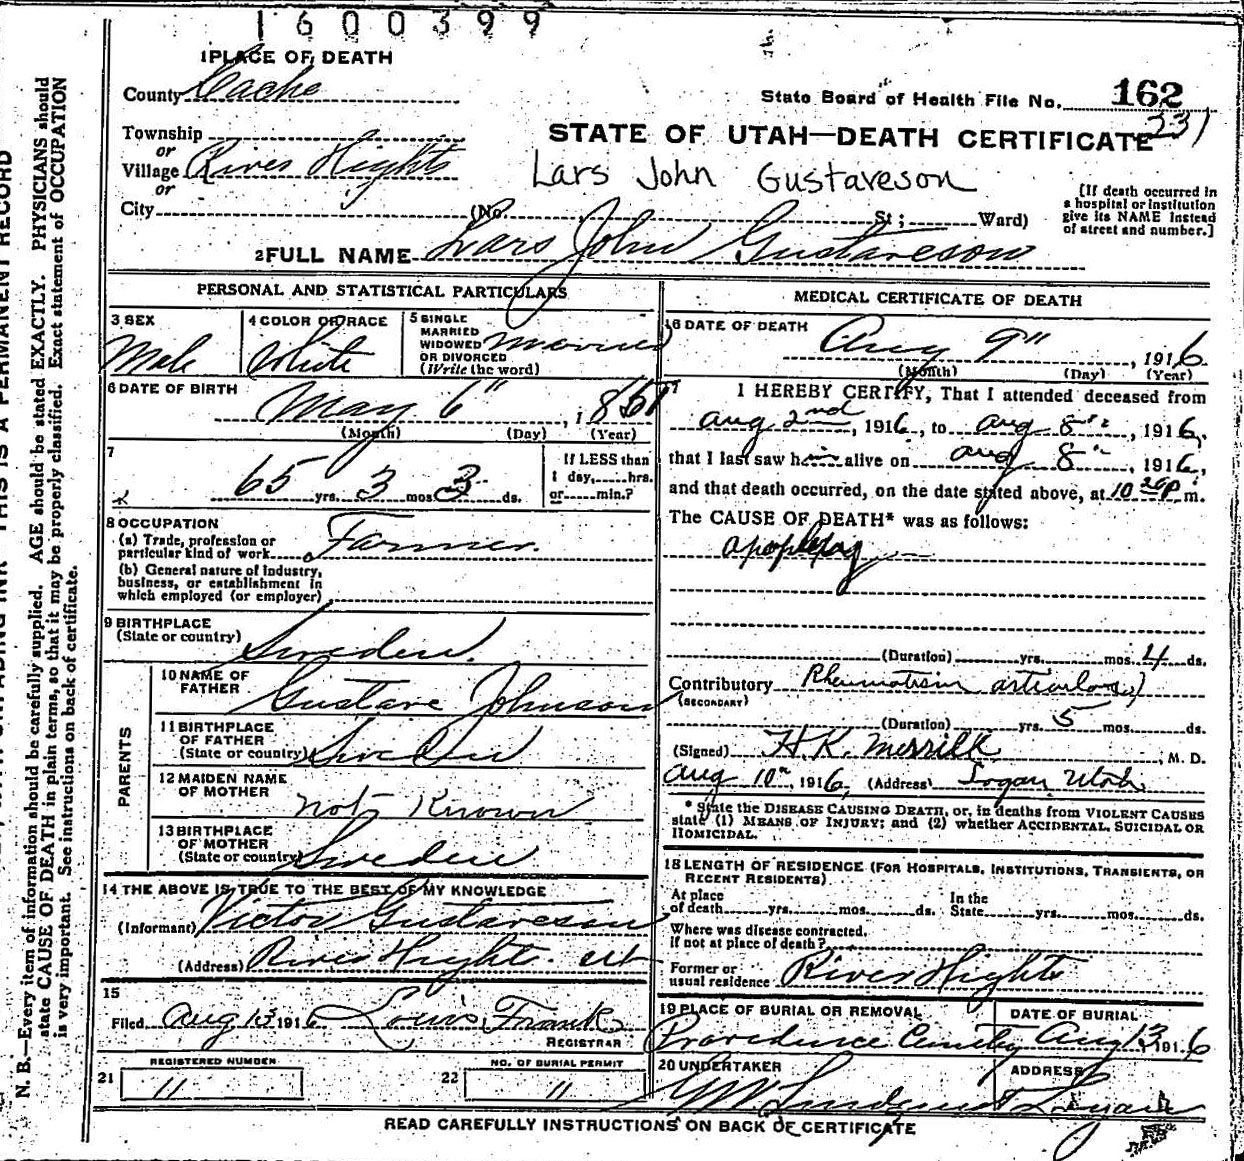 1600399
1 PLACE OF DEATH
County Cache
State Board of Health File No. 162
231
Township
or
Village River Hights
or
City (No. St; Ward)
STATE OF UTAH—DEATH CERTIFICATE
Lars John Gustaveson
[If death occurred in
a hospital or institution
give its NAME instead
of street and number.]
2 FULL NAME Lars John Gustaveson
PERSONAL AND STATISTICAL PARTICULARS
3 SEX
Male
4 COLOR OR RACE
White
5 SINGLE
MARRIED
WIDOWED
OR DIVORCED
(Write the word)
Married
6 DATE OF BIRTH
May 6", 1851
(Month) (Day) (Year)
7
65 yrs. 3 mos 3 ds.
If LESS than
1 day, hrs.
or min.?
8 OCCUPATION
(a) Trade, profession or
particular kind of work Farmer.
(b) General nature of Industry,
business, or establishment in
which employed (or employer)
9 BIRTHPLACE
(State or country) Sweden.
PARENTS
10 NAME OF
FATHER Gustave Johnson
11 BIRTHPLACE
OF FATHER
(State or country) Sweden
12 MAIDEN NAME
OF MOTHER not Known
13 BIRTHPLACE
OF MOTHER
(State or country) Sweden
14 THE ABOVE IS TRUE TO THE BEST OF MY KNOWLEDGE
(Informant) Victor Gustaveson
(Address) River Hights. ut
15
Filed Aug 13 1916 Louis Frank
REGISTRAR
REGISTERED NUMBER
21 11
NO. OF BURIAL PERMIT
22 11
MEDICAL CERTIFICATE OF DEATH
16 DATE OF DEATH
Aug 9", 1916
(Month) (Day) (Year)
17 I HEREBY CERTIFY, That I attended deceased from
Aug 2nd, 1916, to Aug 8", 1916,
that I last saw him alive on Aug 8", 1916,
and that death occurred, on the date stated above, at 10 20 P m.
The CAUSE OF DEATH* was as follows:
apoplexy
(Duration) yrs. mos. 4 ds.
Contributory Rheumatism
(SECONDARY)
(Duration) yrs. 5 mos. ds.
(Signed) H.K. Merrill, M. D.
Aug 10", 1916, (Address) Logan, Utah
* State the DISEASE CAUSING DEATH, or, in deaths from VIOLENT CAUSES
state (1) MEANS OF INJURY; and (2) whether ACCIDENTAL, SUICIDAL OR
HOMICIDAL.
18 LENGTH OF RESIDENCE (FOR HOSPITALS, INSTITUTIONS, TRANSIENTS, OR
RECENT RESIDENTS)
At place
of death yrs. mos. ds.
In the
State yrs. mos. ds.
Where was disease contracted,
if not at place of death?
Former or
usual residence River Hights
19 PLACE OF BURIAL OR REMOVAL
Providence Cemetey
DATE OF BURIAL
Aug 13, 1916
20 UNDERTAKER
ADDRESS
Logan
READ CAREFULLY INSTRUCTIONS ON BACK OF CERTIFICATE
N. B.—Every item of information should be carefully supplied. AGE should be stated EXACTLY. PHYSICIANS should
state CAUSE OF DEATH in plain terms, so that it may be properly classified. Exact statement of OCCUPATION
is very important. See instructions on back of certificate.
THIS IS A PERMANENT RECORD